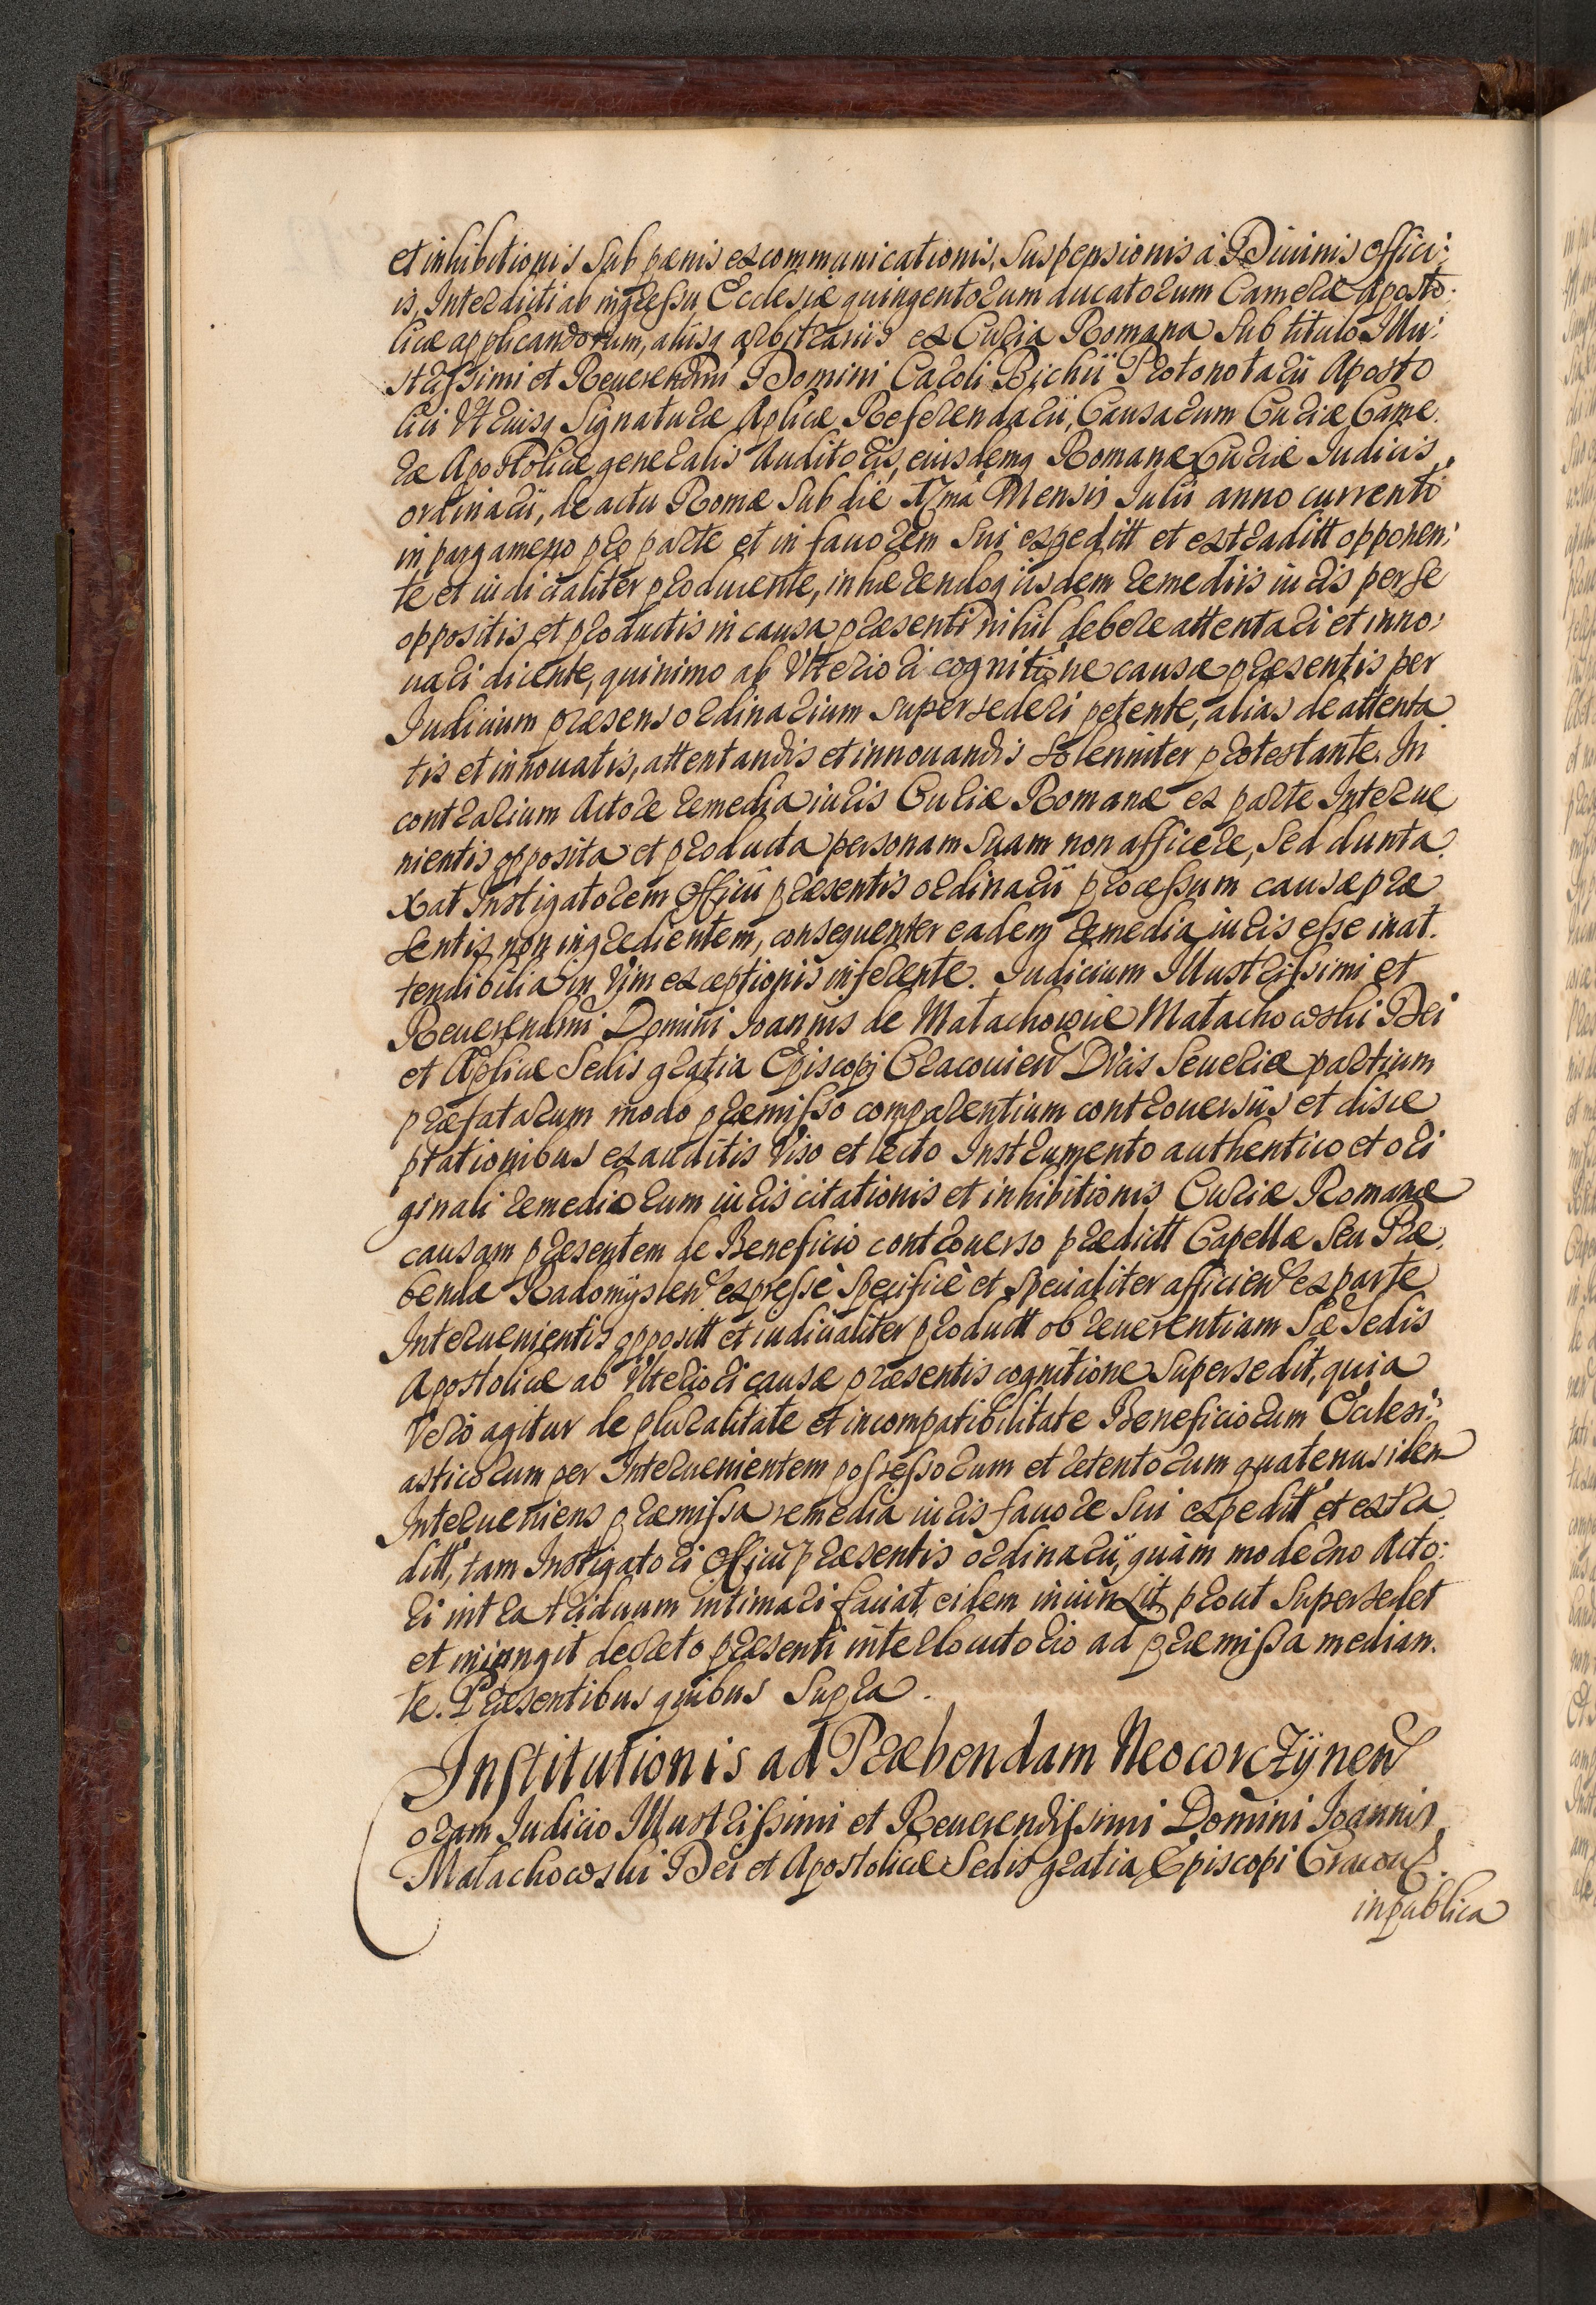 et inhibitionis sub pænis excommunicationis, suspensionis à Diuinis offici:
is, Interdicti ab ingressu Ecclesiæ quingentorum ducatorum Cameræ Aposto:
licæ applicandorum, alijsq arbitrarijs ex Curia Romana sub titulo Illu:
strissimi et Reuerendmi Domini Caroli Bichii Protonotarii Aposto
lici Vtriusq Signaturæ Aplicæ Referendarii, Causarum Curiæ Came.
ræ Apostolicæ generalis Auditoris, eiusdemq Romanæ Curiæ Iudicis
ordinarii, de actu Romæ sub die mensis Iulii anno currenti
in pargameno pro parte et in fauorem sui expeditt et extraditt opponen:
te et iudicialiter producente, inhærendoq iisdem remediis iuris per se
oppositis et productis in causa præsenti nihil debere attentari et inno:
uari dicente, quinimo ab Vlteriori cognitione causæ præsentis per
Iudicium præsens ordinarium supersederi petente, alias de attenta
tis et innouatis, attentandis et innouandis solenniter protestante. In
contrarium Actore remedia iuris Curiæ Romanæ ex parte Interue
nientis opposita et producta personam suam non afficere, sed dunta.
xat Instigatorem Officii præsentis ordinarii processum causæ præ
sentis non ingredientem, consequenter eadem remedia iuris esse inat.
tendibilia in Vim exceptionis inferente. Iudicium Illustrissimi et
Reuerendmi Domini Ioannis de Małachowice Małachowski Dei
et Aplicæ Sedis gratia Episcopi Cracouien Ducis Seueriæ partium
præfatarum modo præmisso comparentium controuersiis et disce
ptationibus exauditis Viso et lecto Instrumento authentico et ori
ginali remediorum iuris citationis et inhibitionis Curiæ Romanæ
causam præsentem de Beneficio controuerso prædictt Capellæ seu Præ
bendæ Radomijslen expressè specificè et specialiter afficien ex parte
Interuenientis oppositt et iudicialiter productt ob reuerentiam Sæ Sedis
Apostolicæ ab Vlteriori causæ præsentis cognitione supersedit, quia
Vero agitur de pluralitate et incompatibilitate Beneficiorum Ecclesi:
asticorum per Interuenientem possessorum et retentorum quatenus idem
Interueniens præmissa remedia iuris fauore sui expeditt et extra
ditt, tam Instigatori Officii præsentis ordinarii, quàm moderno Acto:
ri intra triduum intimari faciat, eidem iniunxit, prout supersedet
et iniungit decreto præsenti interlocutorio ad præmissa median.
te. Præsentibus quibus supra.
Institutionis ad Præbendam Neocorczÿnen
Coram Iudicio Illustrissimi et Reuerendissimi Domini Ioannis
Małachowski Dei et Apostolicæ Sedis gratia Episcopi Cracou.
in publica